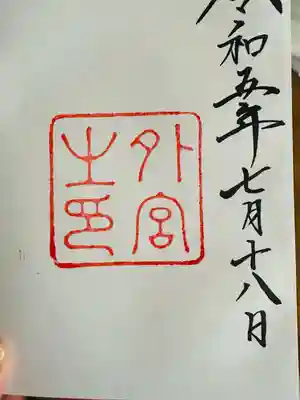 令和五年七月十八日
外宮
之印